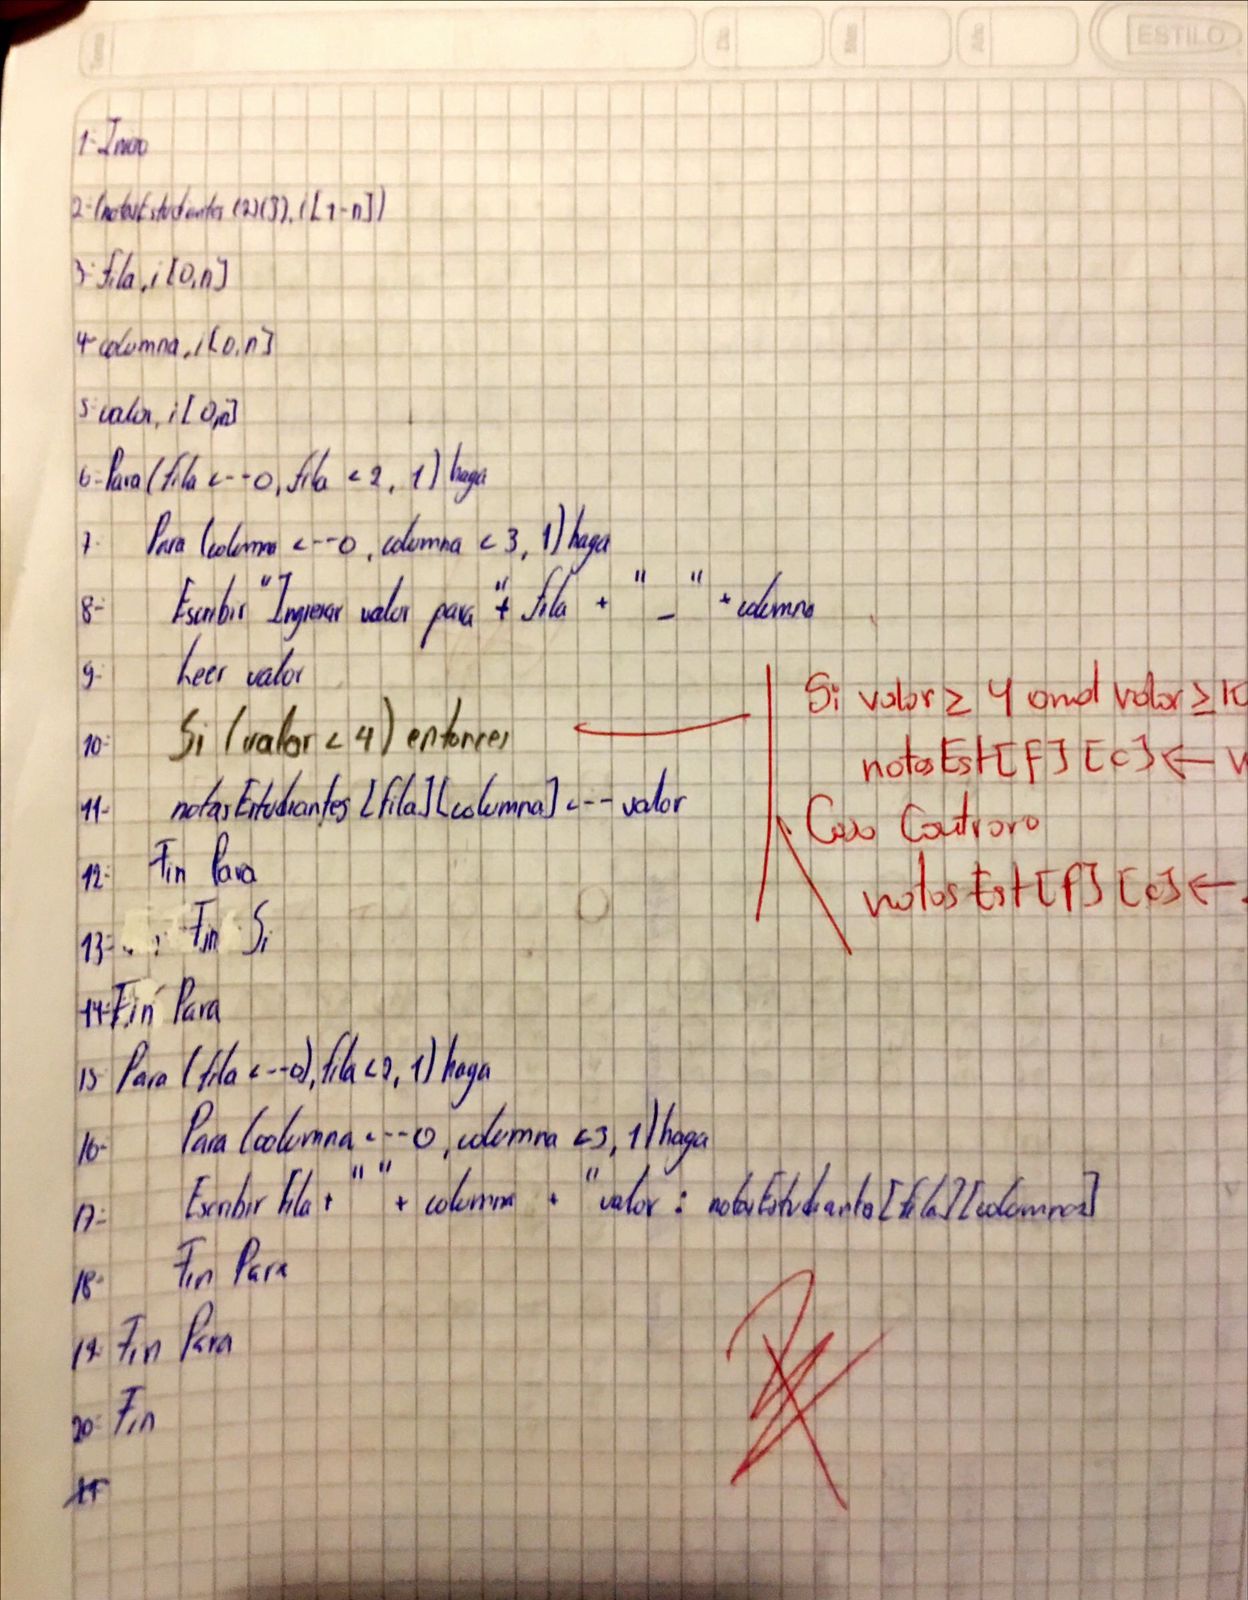 ESTILO
1- Inicio
2- (notasEstudiantes (2)(3), i[1-n])
3- fila, i[0,n]
4- columna, i[0,n]
5- valor, i[0,n]
6- Para (fila <--0, fila <2, 1) haga
7- Para (columna <--0, columna <3, 1) haga
8- Escribir "Ingresar valor para "+ fila + "_" + columna
9- Leer valor
10- Si (valor <4) entonces
11- notasEstudiantes [fila][columna] <-- valor
12- Fin Para
13- Fin Si
14- Fin Para
15- Para (fila <--0), fila <2, 1) haga
16- Para (columna <--0, columna <3, 1) haga
17- Escribir fila + " " + columna + "valor : notasEstudiantes[fila][columna]
18- Fin Para
19- Fin Para
20- Fin
Si valor ≥ 4 and valor ≥ 10
notasEst[F][c] ←
Caso Contraro
notasEst[f][c] ←